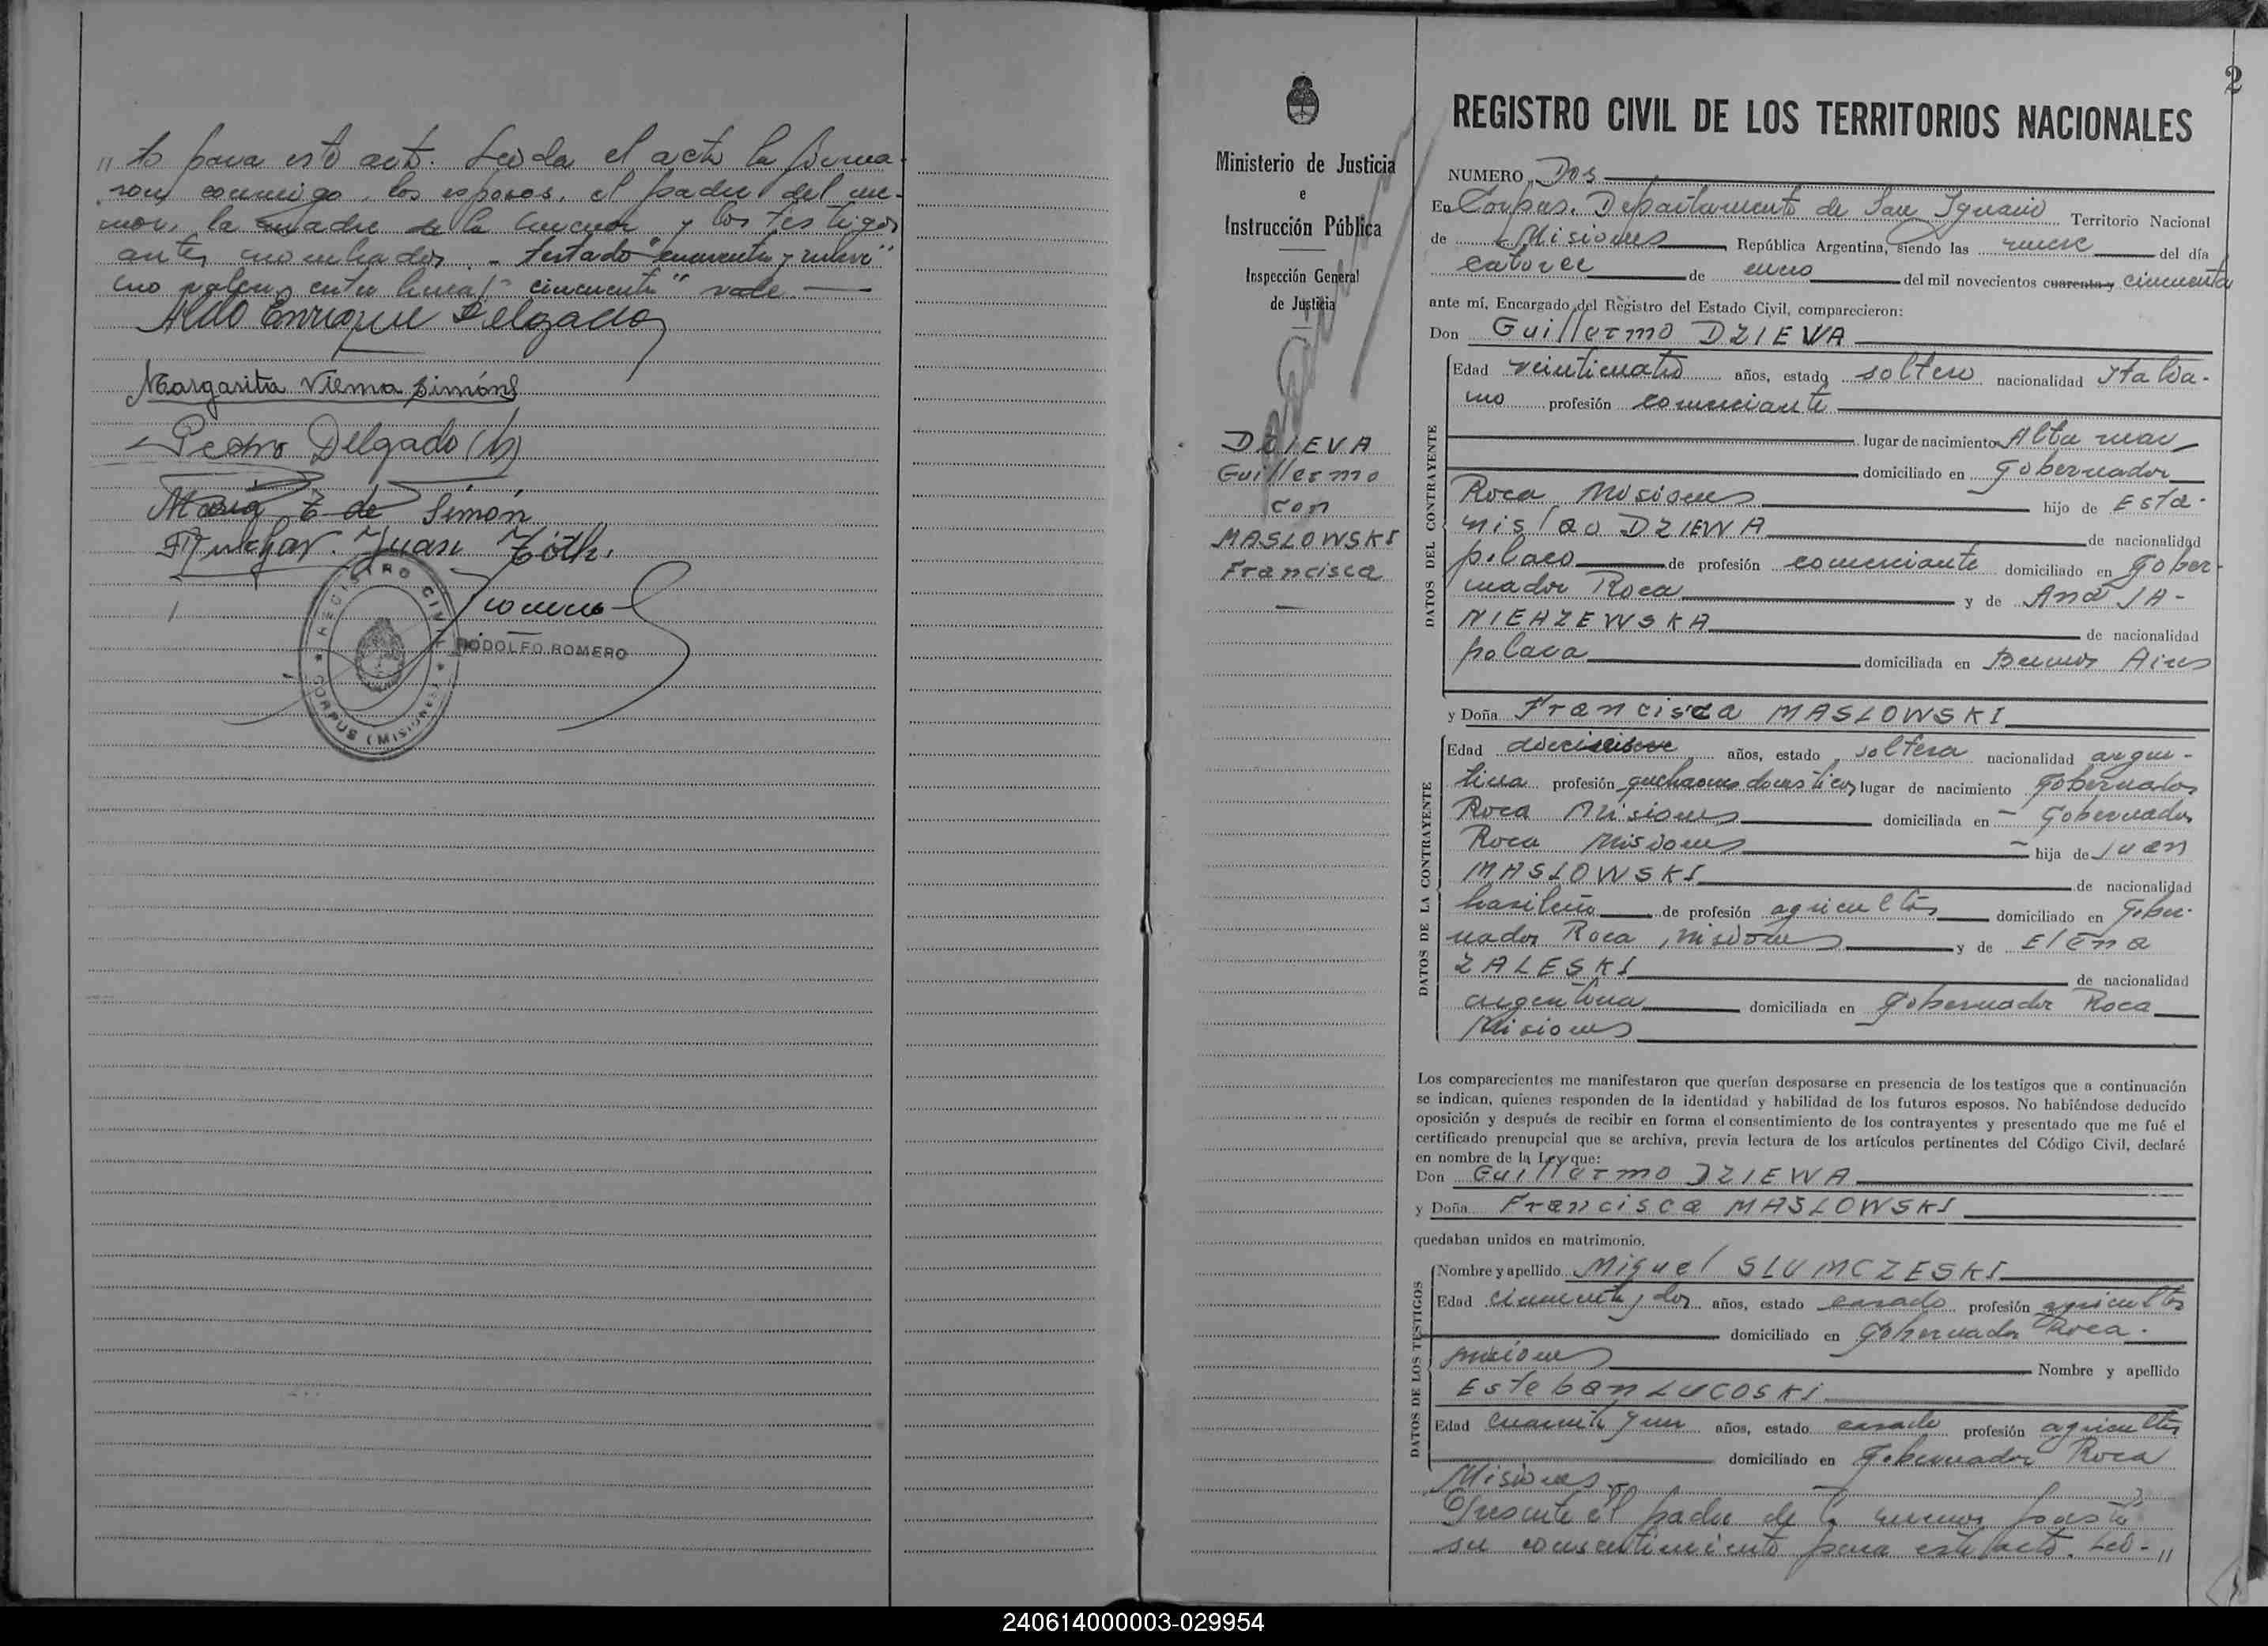 " to para este acto. Leida el acta la firma-
ron conmigo, los esposos, el padre del me-
nor, la madre de la menor y los testigos
antes nombrados. - Testado "cuarenta y nueve"
no valen, entre linea "cincuenta" vale.
Aldo Enrique Delgado
Margarita Vilma Simón
Pedro Delgado (h)
María E de Simón
Juan Tóth.
Romero
REGISTRO CIVIL
CORPUS (MISIONES)
RODOLFO ROMERO
2
Ministerio de Justicia
e
Instrucción Pública
Inspección General
de Justicia
DZIEVA
Guillermo
con
MASLOWSKI
Francisca
REGISTRO CIVIL DE LOS TERRITORIOS NACIONALES
NUMERO Dos
En Corpus, Departamento de San Ignacio Territorio Nacional
de Misiones República Argentina, siendo las nueve del día
catorce de enero del mil novecientos cuarenta y cincuenta
ante mí, Encargado del Registro del Estado Civil, comparecieron:
Don Guillermo DZIEWA
DATOS DEL CONTRAYENTE
Edad veinticuatro años, estado soltero nacionalidad Italia-
no profesión comerciante
lugar de nacimiento Alta mar
domiciliado en Gobernador
Roca Misiones hijo de Esta-
nislao DZIEWA de nacionalidad
polaco de profesión comerciante domiciliado en Gober-
nador Roca y de Ana JA-
NIEHZEWSKA de nacionalidad
polaca domiciliada en Buenos Aires
y Doña Francisca MASLOWSKI
DATOS DE LA CONTRAYENTE
Edad años, estado soltera nacionalidad argen-
tina profesión quehaceres domésticos lugar de nacimiento Gobernador
Roca Misiones domiciliada en Gobernador
Roca Misiones hija de Juan
MASLOWSKI de nacionalidad
brasileño de profesión agricultor domiciliado en Gober-
nador Roca, Misiones y de Elena
ZALESKI de nacionalidad
argentina domiciliada en Gobernador Roca
Misiones
Los comparecientes me manifestaron que querían desposarse en presencia de los testigos que a continuación
se indican, quienes responden de la identidad y habilidad de los futuros esposos. No habiéndose deducido
oposición y después de recibir en forma el consentimiento de los contrayentes y presentado que me fué el
certificado prenupcial que se archiva, previa lectura de los artículos pertinentes del Código Civil, declaré
en nombre de la Ley que:
Don Guillermo DZIEWA
y Doña Francisca MASLOWSKI
quedaban unidos en matrimonio.
DATOS DE LOS TESTIGOS
Nombre y apellido Miguel SLUMCZESKI
Edad cincuenta y dos años, estado casado profesión agricultor
domiciliado en Gobernador Roca.
Misiones Nombre y apellido
Esteban LUCOSKI
Edad cuarenta y un años, estado casado profesión agricultor
domiciliado en Gobernador Roca
Misiones.
Presente el padre de la menor presta
su consentimiento para este acto. Leí- "
240614000003-029954